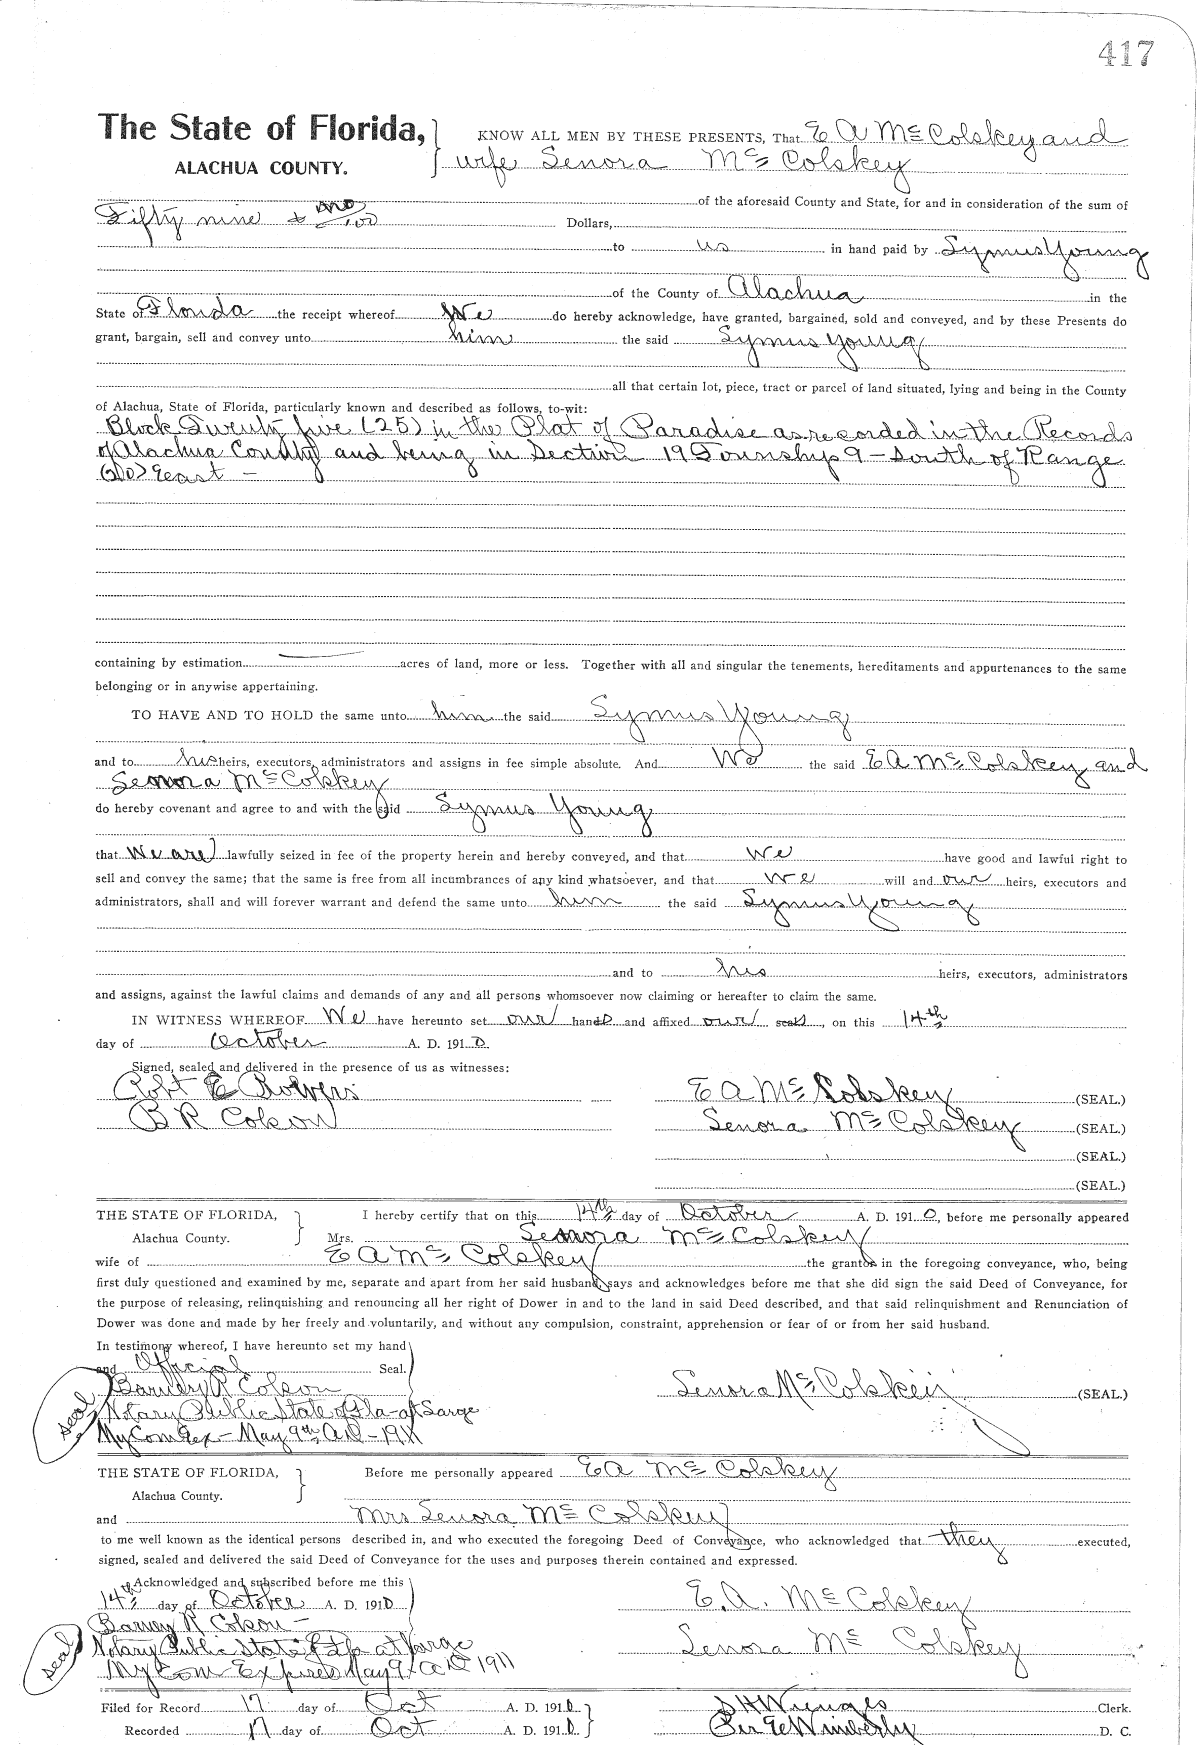 417
The State of Florida, KNOW ALL MEN BY THESE PRESENTS, That E A McColskey and
ALACHUA COUNTY. wife Senora McColskey
of the aforesaid County and State, for and in consideration of the sum of
Fifty nine & no/100 Dollars,
to us in hand paid by Symus Young
of the County of Alachua in the
State of Florida the receipt whereof We do hereby acknowledge, have granted, bargained, sold and conveyed, and by these Presents do
grant, bargain, sell and convey unto him the said Symus Young
all that certain lot, piece, tract or parcel of land situated, lying and being in the County
of Alachua, State of Florida, particularly known and described as follows, to-wit:
Block Twenty five (25) in the Plat of Paradise as recorded in the Records
of Alachua County and being in Section 19 Township 9 - South of Range
(20) East -
containing by estimation acres of land, more or less. Together with all and singular the tenements, hereditaments and appurtenances to the same
belonging or in anywise appertaining.
TO HAVE AND TO HOLD the same unto him the said Symus Young
and to his heirs, executors, administrators and assigns in fee simple absolute. And We the said E A McColskey and
Senora McColskey
do hereby covenant and agree to and with the said Symus Young
that We are lawfully seized in fee of the property herein and hereby conveyed, and that we have good and lawful right to
sell and convey the same; that the same is free from all incumbrances of any kind whatsoever, and that we will and our heirs, executors and
administrators, shall and will forever warrant and defend the same unto him the said Symus Young
and to his heirs, executors, administrators
and assigns, against the lawful claims and demands of any and all persons whomsoever now claiming or hereafter to claim the same.
IN WITNESS WHEREOF We have hereunto set our hands and affixed our seals, on this 14th
day of October A. D. 1910.
Signed, sealed and delivered in the presence of us as witnesses:
Robt E Rolfers E A McColskey (SEAL.)
B R Colson Senora McColskey (SEAL.)
(SEAL.)
(SEAL.)
THE STATE OF FLORIDA, I hereby certify that on this 14th day of October A. D. 1910, before me personally appeared
Alachua County. Mrs. Senora McColskey
wife of E A McColskey the grantor in the foregoing conveyance, who, being
first duly questioned and examined by me, separate and apart from her said husband, says and acknowledges before me that she did sign the said Deed of Conveyance, for
the purpose of releasing, relinquishing and renouncing all her right of Dower in and to the land in said Deed described, and that said relinquishment and Renunciation of
Dower was done and made by her freely and voluntarily, and without any compulsion, constraint, apprehension or fear of or from her said husband.
In testimony whereof, I have hereunto set my hand
and Official Seal.
seal Barney R Colson Senora McColskey (SEAL.)
Notary Public State of Fla - at Large
My Com Ex - May 9th AD - 1911
THE STATE OF FLORIDA, Before me personally appeared E A McColskey
Alachua County.
and Mrs Senora McColskey
to me well known as the identical persons described in, and who executed the foregoing Deed of Conveyance, who acknowledged that they executed,
signed, sealed and delivered the said Deed of Conveyance for the uses and purposes therein contained and expressed.
Acknowledged and subscribed before me this
14th day of October A. D. 1910 E. A. McColskey
Barney R Colson -
seal Notary Public State of Fla at Large Senora McColskey
My Com Expires May 9 - AD 1911
Filed for Record 17 day of Oct A. D. 1910 S H Wienges Clerk.
Recorded 17 day of Oct A. D. 1910 Per E Wimberly D. C.